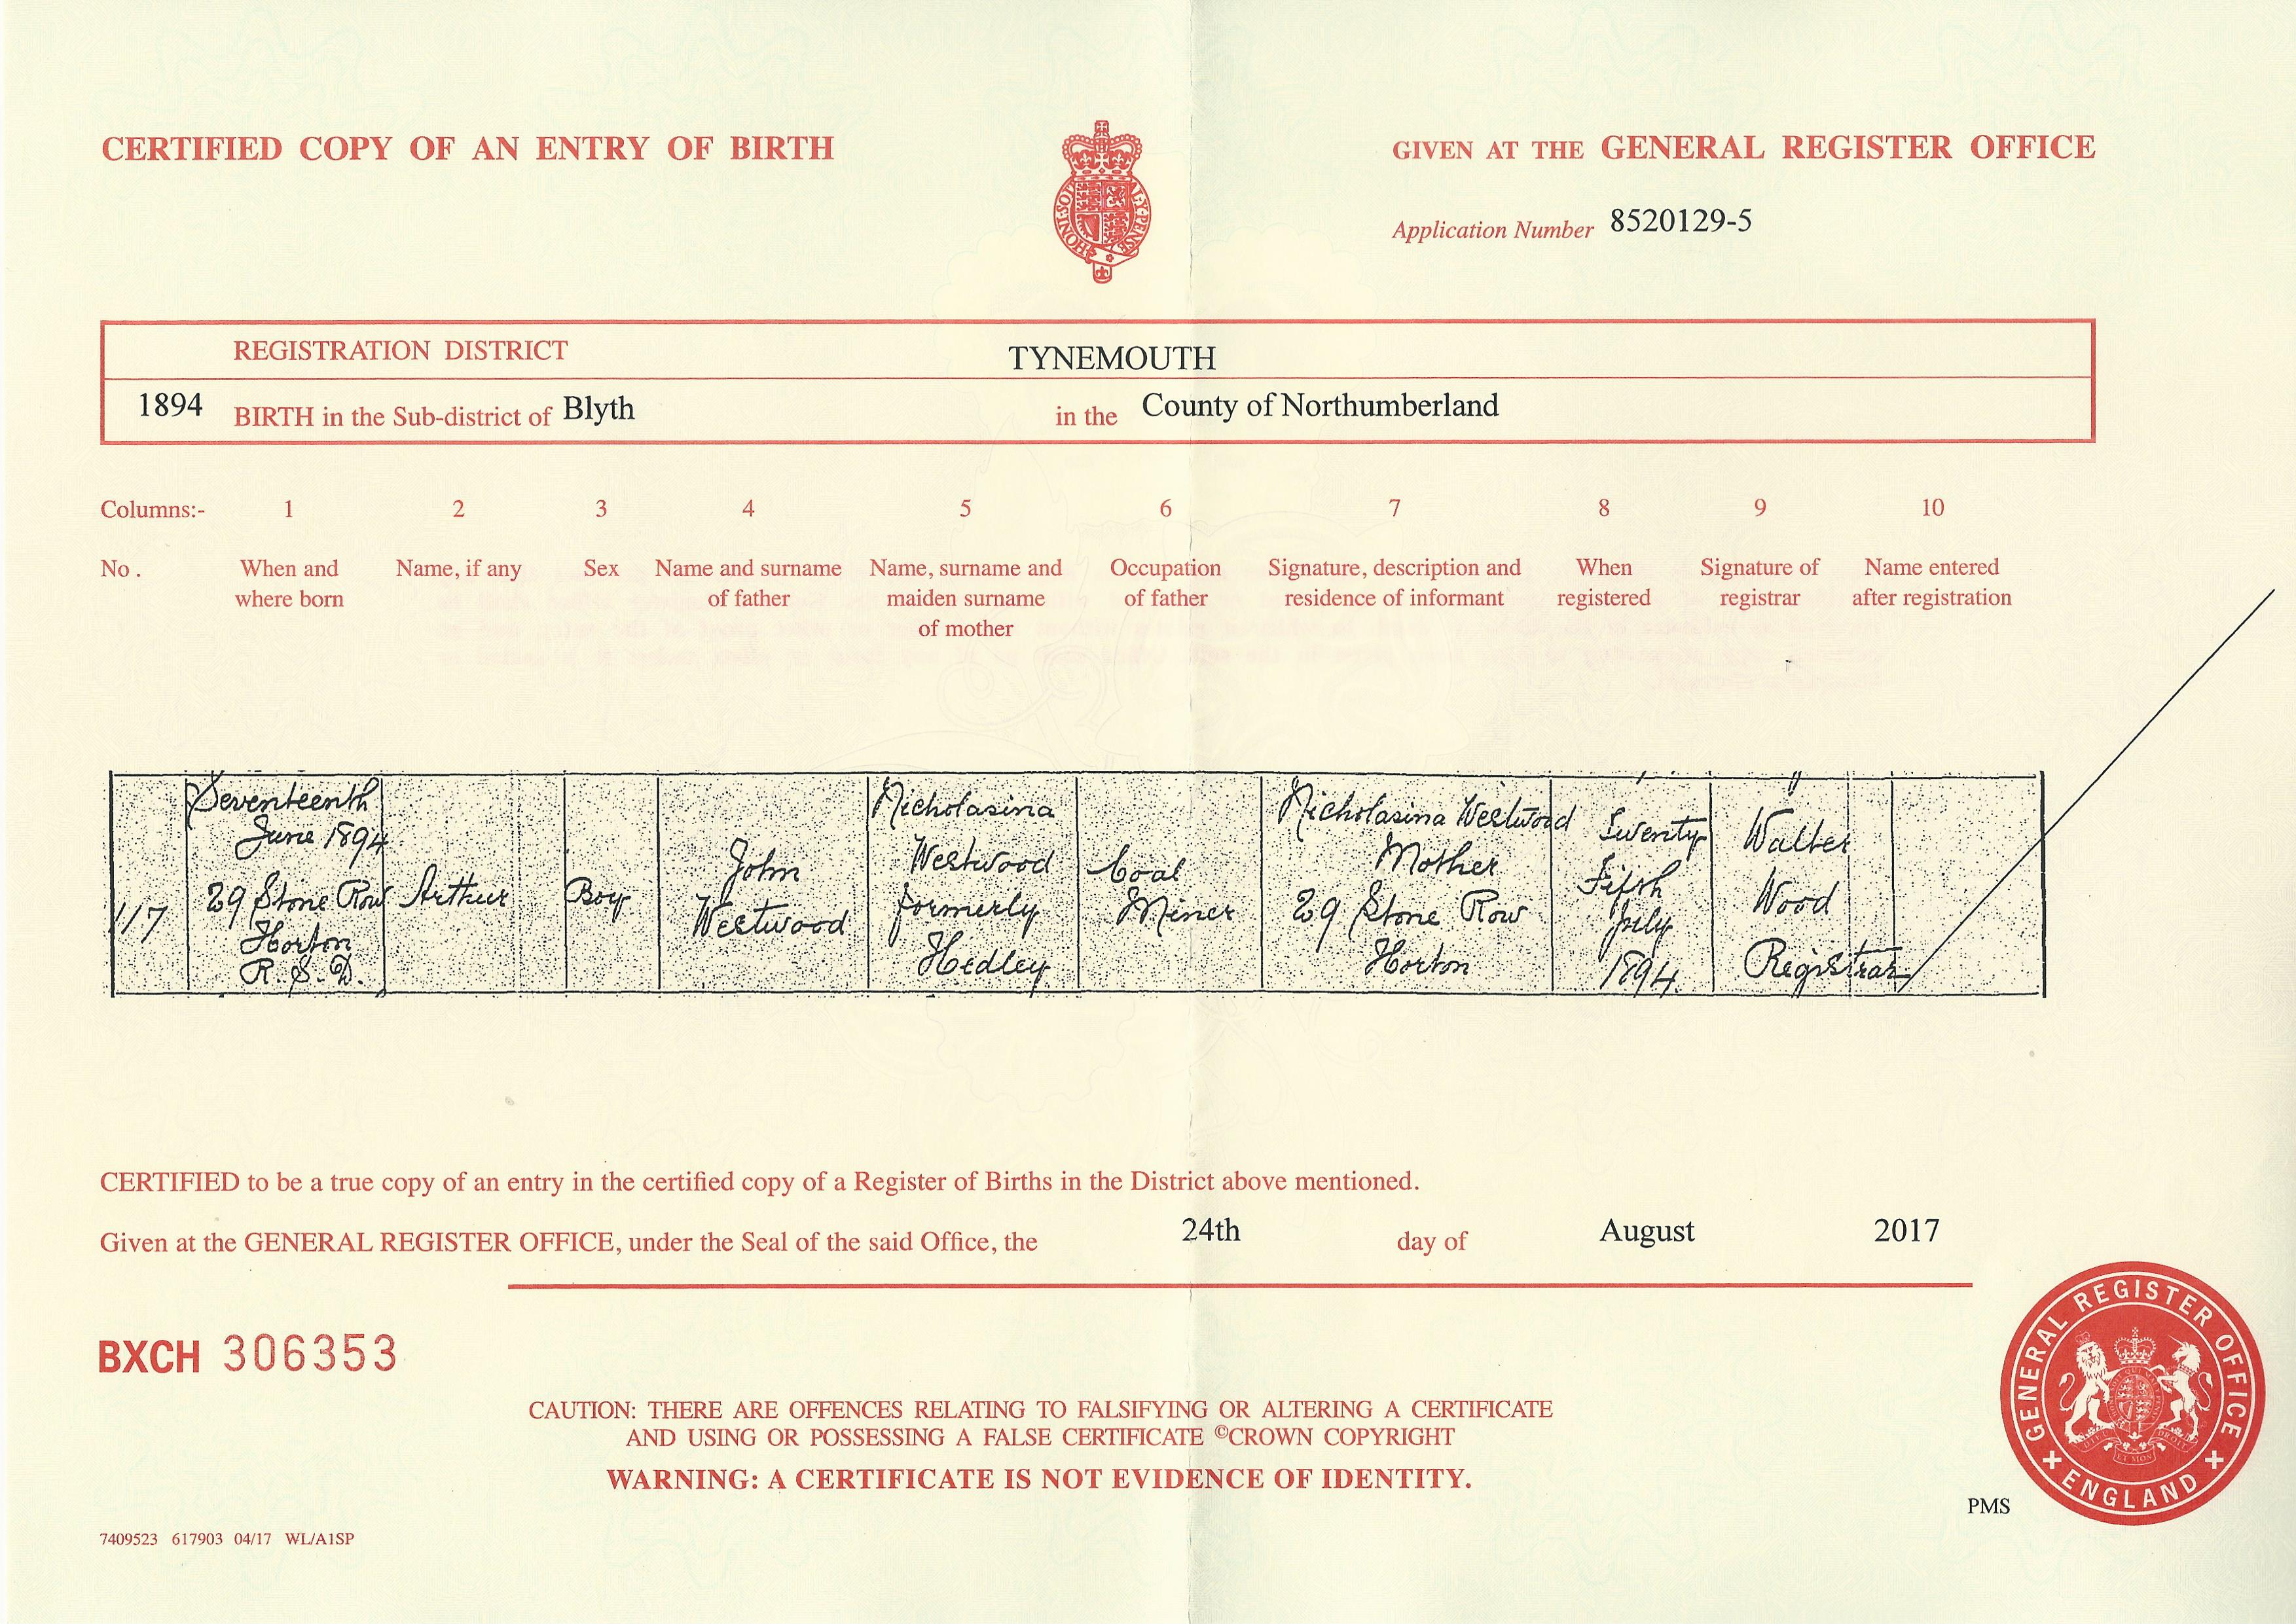 CERTIFIED COPY OF AN ENTRY OF BIRTH
GIVEN AT THE GENERAL REGISTER OFFICE
HONI SOIT QUI MAL Y PENSE
Application Number 8520129-5
REGISTRATION DISTRICT TYNEMOUTH
1894 BIRTH in the Sub-district of Blyth in the County of Northumberland
Columns:- 1 2 3 4 5 6 7 8 9 10
No.
When and
where born
Name, if any
Sex
Name and surname
of father
Name, surname and
maiden surname
of mother
Occupation
of father
Signature, description and
residence of informant
When
registered
Signature of
registrar
Name entered
after registration
117
Seventeenth
June 1894
29 Stone Row
Horton
R.S.D.
Arthur
Boy
John
Westwood
Nicholasina
Westwood
formerly
Hedley
Coal
Miner
Nicholasina Westwood
Mother
29 Stone Row
Horton
Twenty
Fifth
July
1894
Walter
Wood
Registrar
CERTIFIED to be a true copy of an entry in the certified copy of a Register of Births in the District above mentioned.
Given at the GENERAL REGISTER OFFICE, under the Seal of the said Office, the 24th day of August 2017
BXCH 306353
CAUTION: THERE ARE OFFENCES RELATING TO FALSIFYING OR ALTERING A CERTIFICATE
AND USING OR POSSESSING A FALSE CERTIFICATE ©CROWN COPYRIGHT
WARNING: A CERTIFICATE IS NOT EVIDENCE OF IDENTITY.
GENERAL REGISTER OFFICE
ENGLAND
PMS
7409523 617903 04/17 WL/A1SP